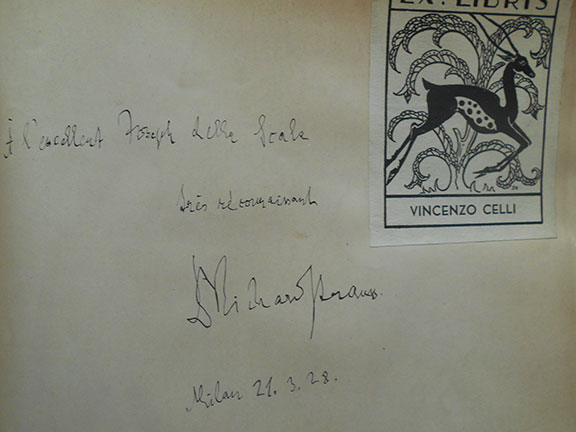 EX·LIBRIS
À l'excellent Joseph della Scala
très reconnaissant
DRichard Strauss.
Milan 21. 3. 28.
VINCENZO CELLI